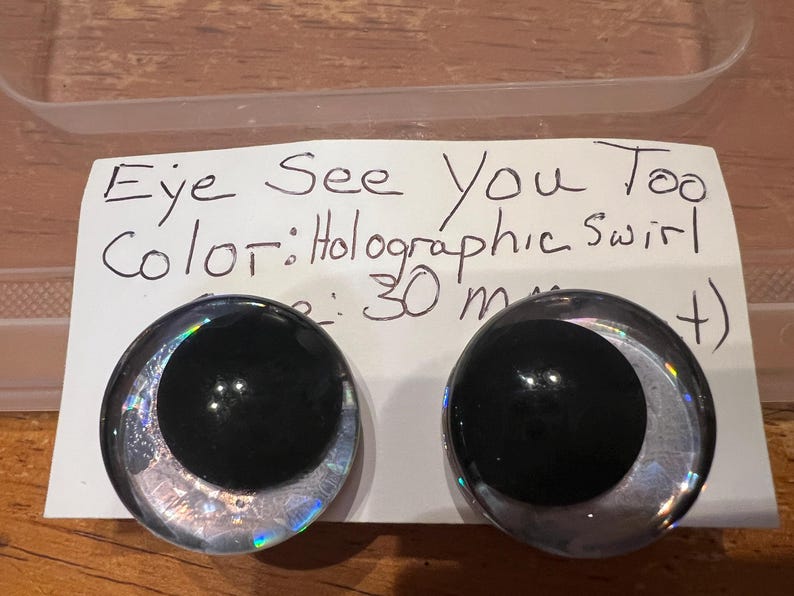 Eye See You Too
Color: Holographic Swirl
: 30 m